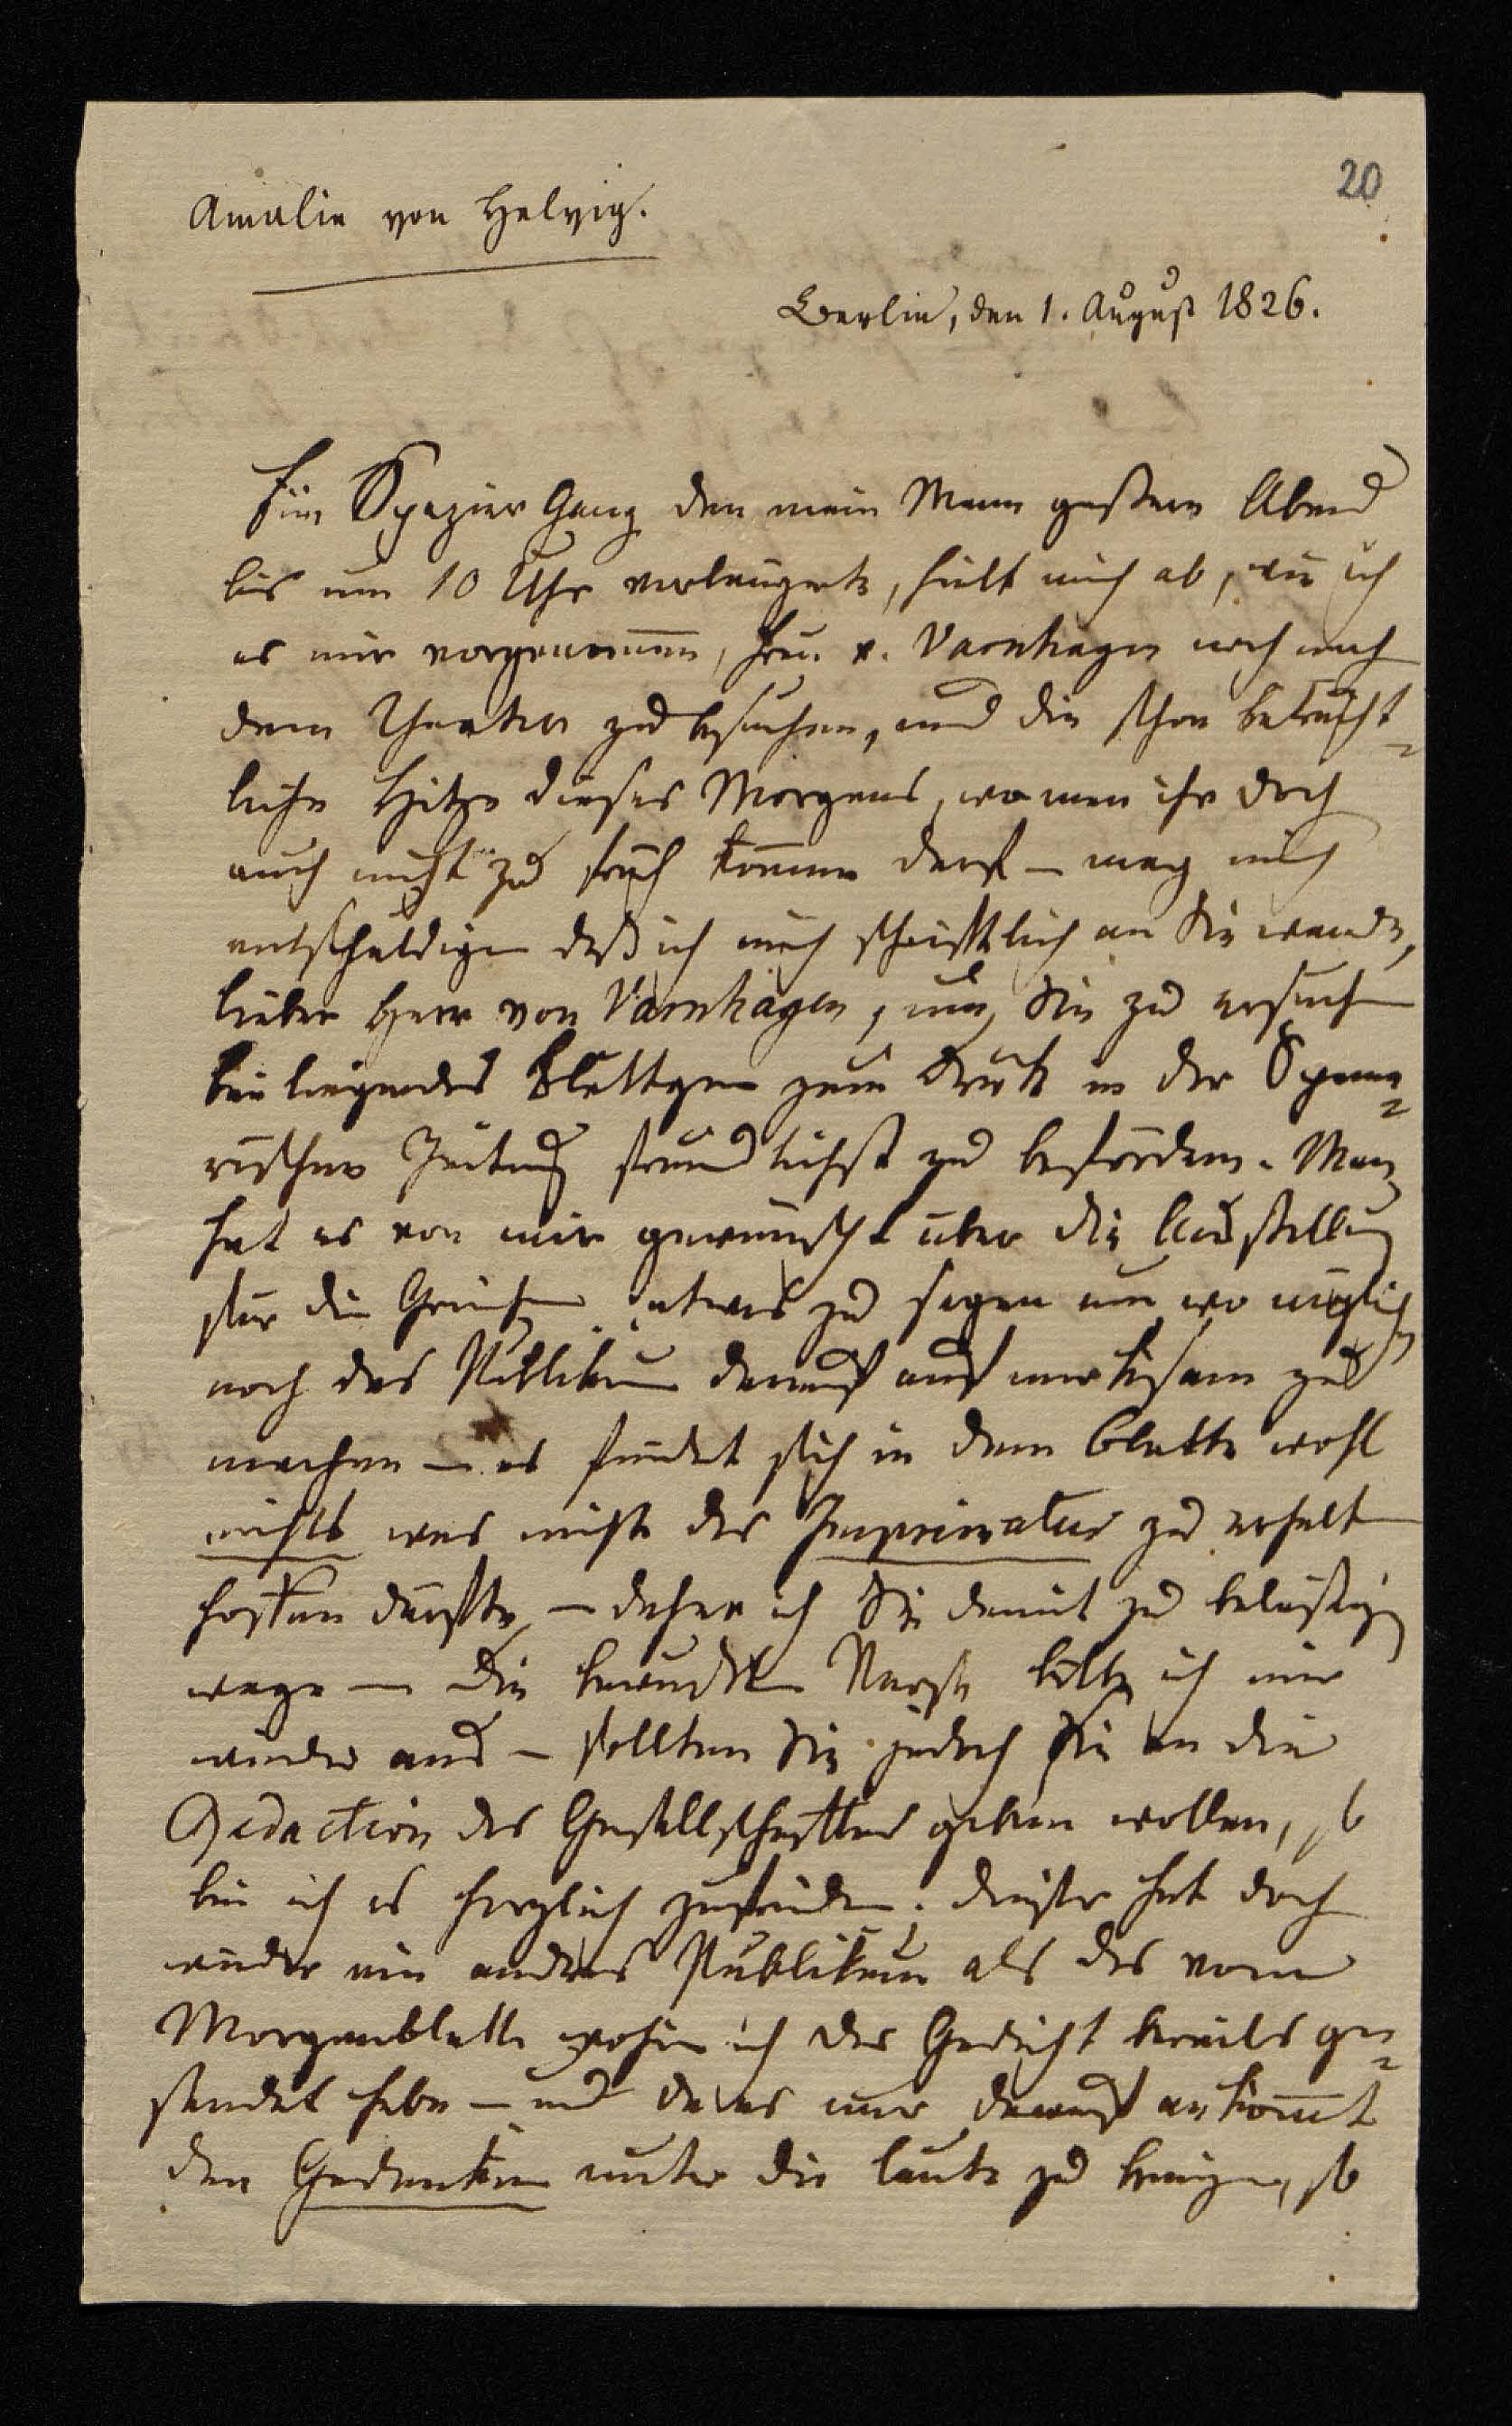 20
Amalie von Helvig.
Berlin, den 1. August 1826.
Ein Spazier Gang den mein Mann gestern Abend
bis um 10 Uhr verlängerte, hielt mich ab, wie ich
es mir vorgenom̄en, Frau v. Varnhagen noch nach
dem Theater zu besuchen, und die schon beträcht-
liche Hitze dieses Morgens, wo man ihr doch
auch nicht zu früh kom̄en darf – mag mich
entschuldigen daß ich mich schriftlich an Sie wende,
lieber Herr von Varnhagen, um Sie zu ersuchen
beiliegendes Blättgen zum Druck in der Spene-
rischen Zeitung freundlichst zu befördern. Man
hat es von mir gewünscht über die Ausstellung
für die Griechen etwas zu sagen um wo möglich
noch das Publikum darauf aufmerksam zu
machen – es findet sich in dem Blatte wohl
nichts was nicht das Imprimatur zu erhalten
hoffen dürfte, – daher ich Sie damit zu belästigen
wage – Die bewußten Verse bitte ich mir
wieder aus – sollten Sie jedoch sie an die
Redaction des Gesellschafters geben wollen, so
bin ich es herzlich zufrieden; dieser hat doch
wieder ein andres Publikum als das vom
Morgenblatte wohin ich das Gedicht bereits ge-
sendet habe – und da es nur darauf ankom̄t
den Gedanken unter die Leute zu bringen, so